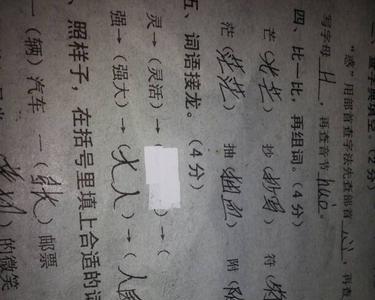 查字典填空。(2分)
“惑”用部首查字法先查部首 心 ，再查
写字母 H ，再查音节 huò 。
四、比一比，再组词。(4分)
芒(光芒) 抄(抄写) 符(
茫(茫茫) 抽( ) 附(
五、词语接龙。(4分)
灵→(灵活)→( )→(
强→(强大)→(大人)→(人
、照样子，在括号里填上合适的词
一(辆)汽车 一(张)邮票
)的微笑